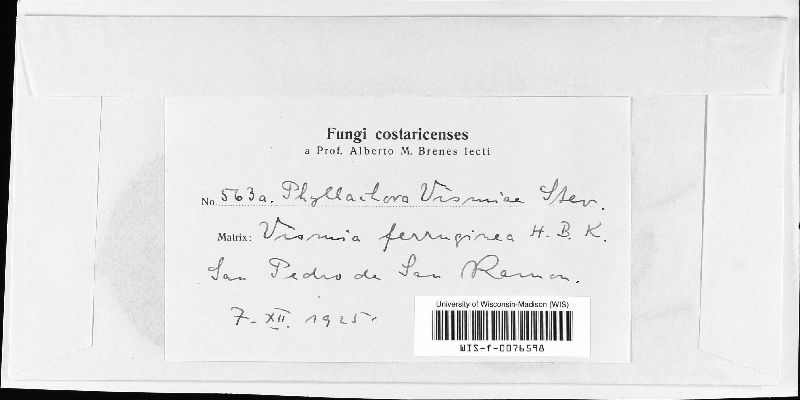 Fungi costaricenses
a Prof. Alberto M. Brenes lecti
No. 563a. Phyllachora Vismiae Stev.
Matrix: Vismia ferruginea H. B. K.
San Pedro de San Ramon.
7-XII. 1925.
University of Wisconsin-Madison (WIS)
WIS-f-0076598